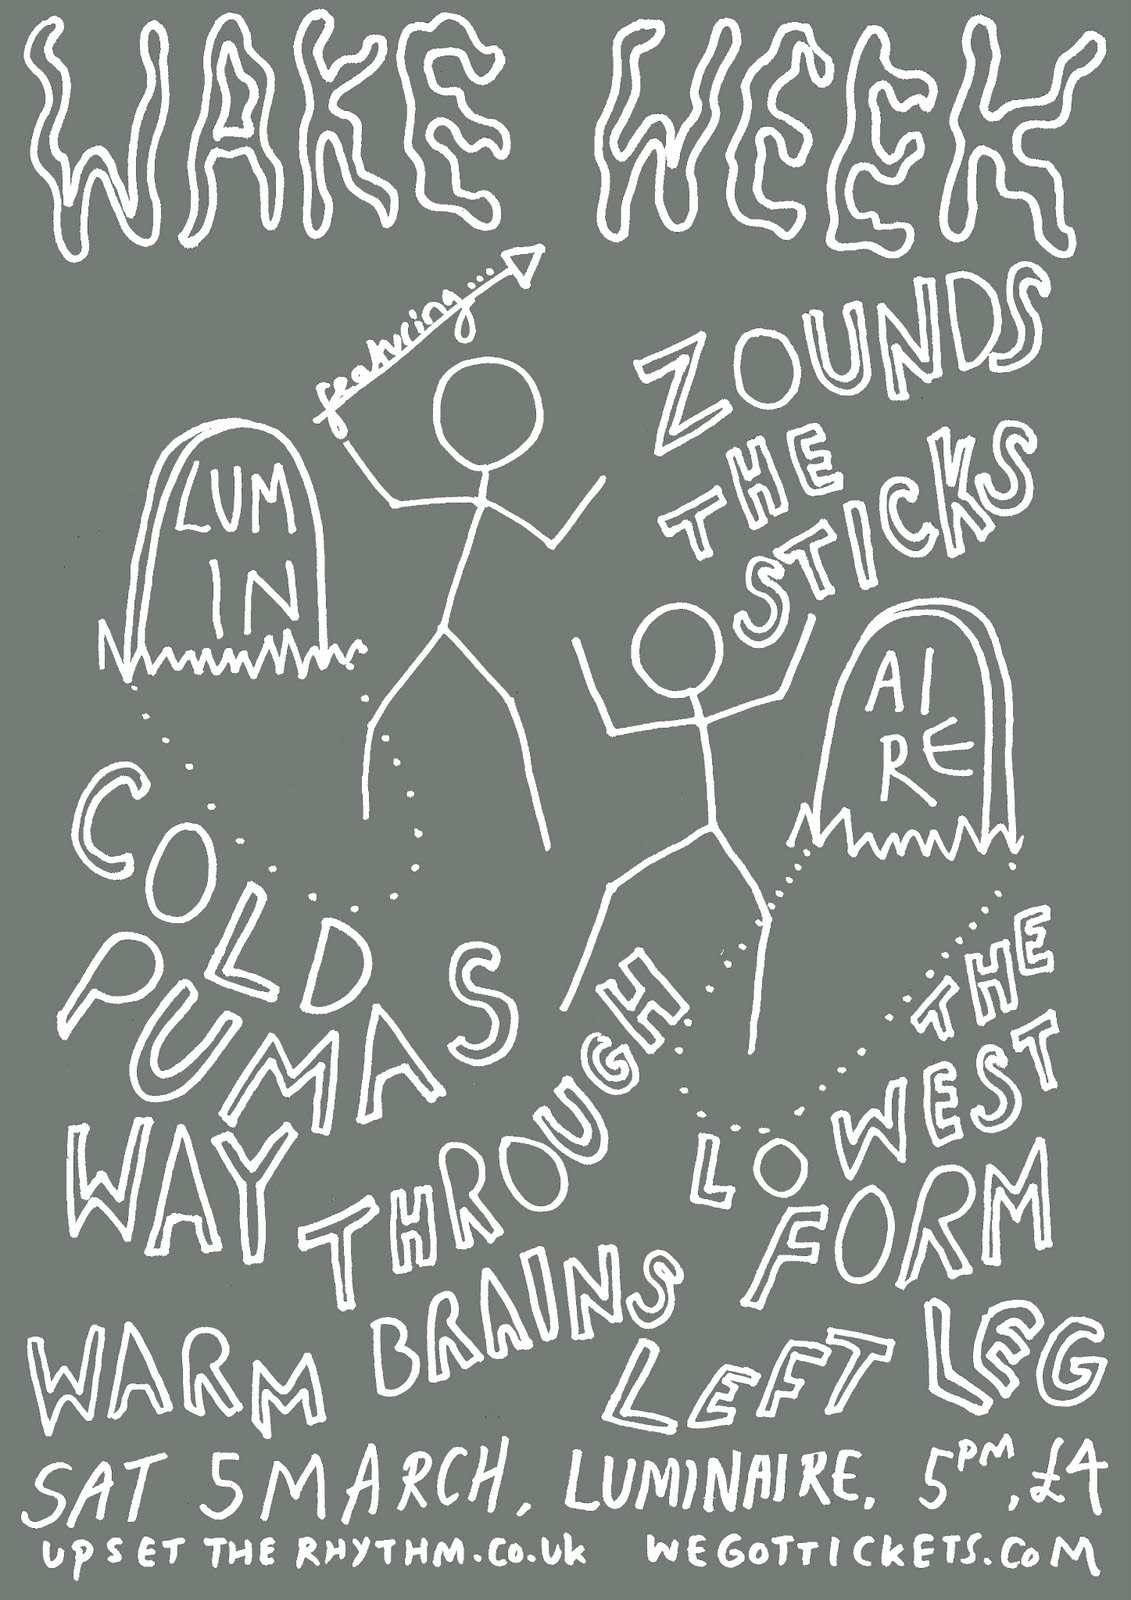 WAKE WEEK
featuring...
ZOUNDS
THE
STICKS
LUM
IN
AI
RE
COLD
PUMAS
WAY THROUGH
THE
LOWEST
FORM
WARM BRAINS
LEFT LEG
SAT 5 MARCH, LUMINAIRE, 5PM, £4
UPSET THE RHYTHM.CO.UK WEGOTTICKETS.COM